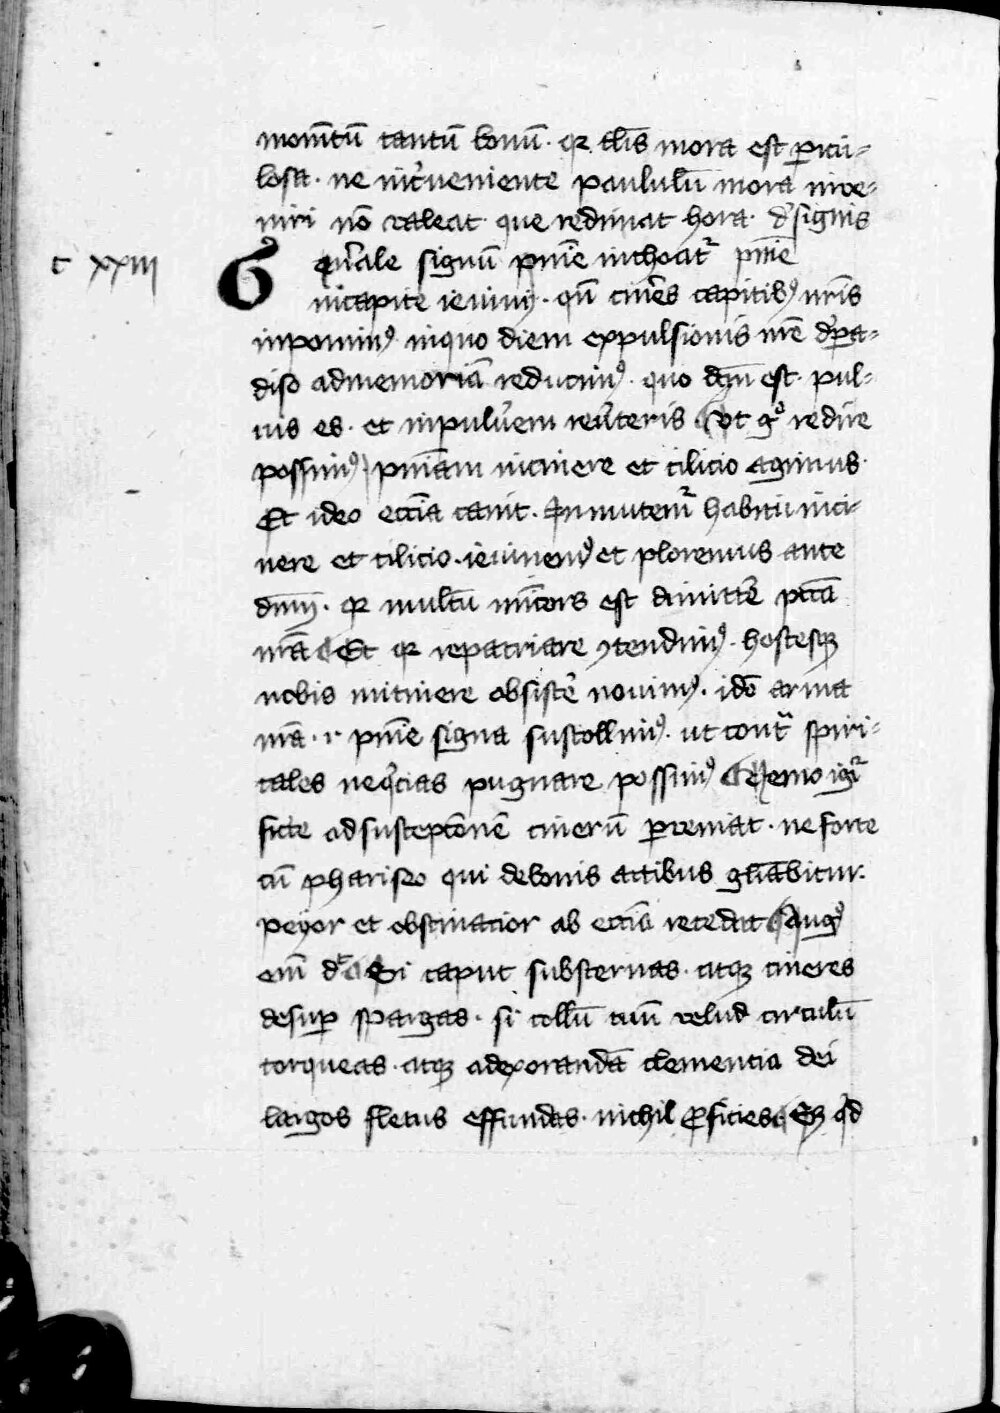 mom̄tū tantū bonū · qꝛ tl̄is mora est ꝑicu-
losa · ne int̾ueniente paululū mora inve-
niri nō valeat · que redimat hora · d̾ signis
c xxiii Gn̾ale signū pn̄ie inchoat᷑ pn̄ie
in capite ieiunij · qn̄ cin̾es capitibꝰ nr̄is
inponimꝰ · in quo diem expulsionis nr̄e d̾ ꝑa-
diso ad memoriā reducimꝰ · quo dc̄m est · pul-
uis es · et in pulu̾em reu̾teris · Vt g° redire
possimꝰ pn̄iam in cinere et cilicio agimus ·
Et ideo eccīa canit · Inmutem᷑ habitū in ci-
nere et cilicio · ieiunemꝰ et ploremus ante
dn̄m · qꝛ multū mīcors est dimitte̾ pcc̄a
nr̄a Et qꝛ repatriare ꝯtendimꝰ · hostesqꝫ
nobis in itinere obsiste̾ novimꝰ · idō arma
nr̄a · pn̄ie signa sustollimꝰ · ut contᷓ spiri-
tales neq̾cias pugnare possimꝰ Nemo igi᷑
ficte ad susceptōnē cinerū ꝑveniat · ne forte
cū phariseo qui de bonis actibus gl̄iabitur ·
peyor et obstinacior ab eccīa recedat Augꝰ
em̄ d᷎t Si caput substernas · atqꝫ cineres
desuꝑ spargas · si collū tuū velud circulū
torqueas · atqꝫ ad exorandā clementia dei
largos fletus effundas · nichil ꝓficies Sꝫ qd̾